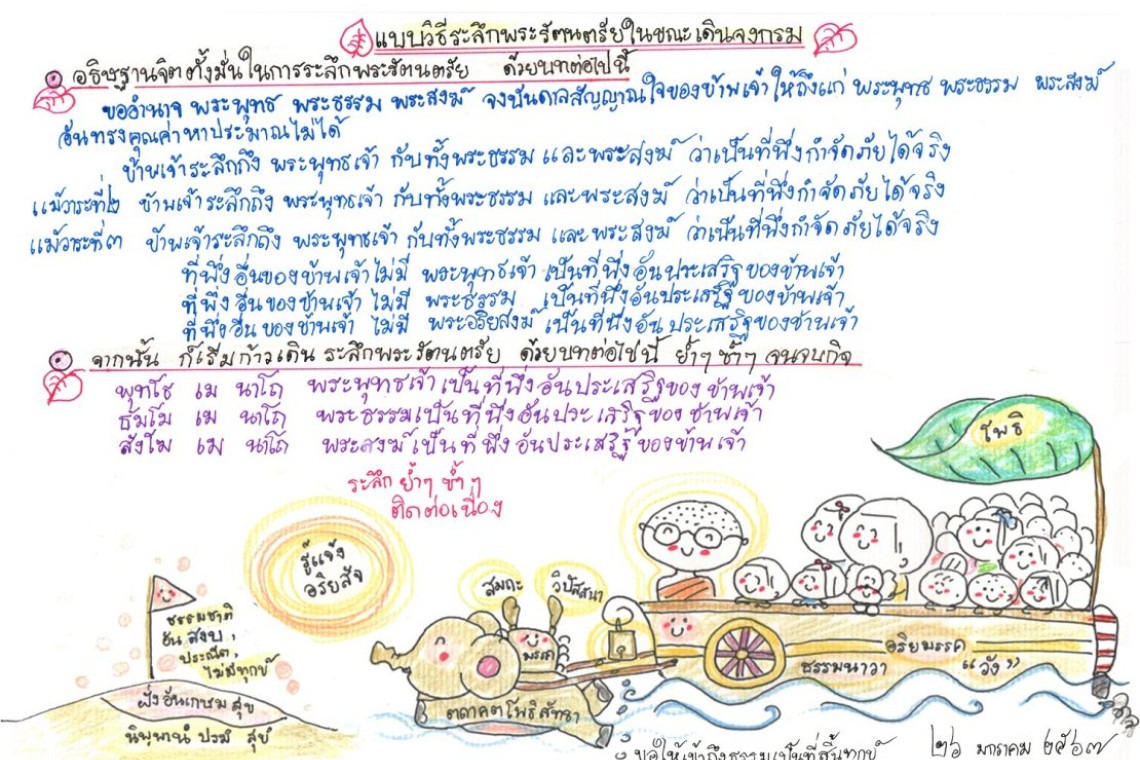 แบบวิธีระลึกพระรัตนตรัยในขณะเดินจงกรม
อธิษฐานจิตตั้งมั่นในการระลึกพระรัตนตรัย ด้วยบทต่อไปนี้
ขออำนาจ พระพุทธ พระธรรม พระสงฆ์ จงบันดาลสัญญาณใจของข้าพเจ้าให้ถึงแก่ พระพุทธ พระธรรม พระสงฆ์
อันทรงคุณค่าหาประมาณไม่ได้
ข้าพเจ้าระลึกถึง พระพุทธเจ้า กับทั้งพระธรรม และพระสงฆ์ ว่าเป็นที่พึ่งกำจัดภัยได้จริง
แม้วาระที่๒ ข้าพเจ้าระลึกถึง พระพุทธเจ้า กับทั้งพระธรรม และพระสงฆ์ ว่าเป็นที่พึ่งกำจัดภัยได้จริง
แม้วาระที่๓ ข้าพเจ้าระลึกถึง พระพุทธเจ้า กับทั้งพระธรรม และพระสงฆ์ ว่าเป็นที่พึ่งกำจัดภัยได้จริง
ที่พึ่งอื่นของข้าพเจ้าไม่มี พระพุทธเจ้า เป็นที่พึ่งอันประเสริฐของข้าพเจ้า
ที่พึ่งอื่นของข้าพเจ้า ไม่มี พระธรรม เป็นที่พึ่งอันประเสริฐของข้าพเจ้า
ที่พึ่งอื่นของข้าพเจ้า ไม่มี พระอริยสงฆ์ เป็นที่พึ่งอันประเสริฐของข้าพเจ้า
จากนั้น ก็เริ่มก้าวเดิน ระลึกพระรัตนตรัย ด้วยบทต่อไปนี้ ย้ำๆ ซ้ำๆ จนจบกิจ
พุทโธ เม นาโถ พระพุทธเจ้าเป็นที่พึ่งอันประเสริฐของข้าพเจ้า
ธัมโม เม นาโถ พระธรรมเป็นที่พึ่งอันประเสริฐของข้าพเจ้า
สังโฆ เม นาโถ พระสงฆ์เป็นที่พึ่งอันประเสริฐของข้าพเจ้า
ระลึก ย้ำๆ ซ้ำๆ
ติดต่อเนื่อง
โพธิ
รู้แจ้ง
อริยสัจ
สมถะ
วิปัสสนา
มรรค
ธรรมชาติ
อันสงบ,
ประณีต,
ไม่มีทุกข์
ฝั่งอันเกษมสุข
นิพพานํ ปรมํ สุขํ
ตถาคตโพธิสัทธา
อริยมรรค
ธรรมนาวา "วัง"
ขอให้เข้าถึงธรรมเป็นที่สิ้นทุกข์
๒๖ มกราคม ๒๕๖๗